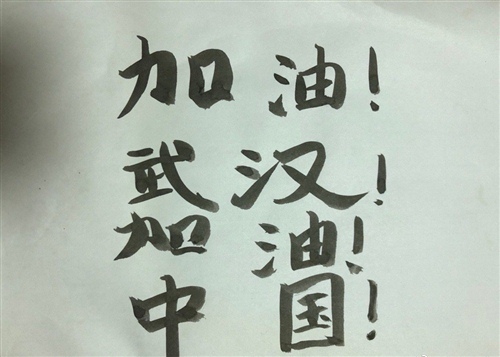 加油!
武汉!
加油!
中国!